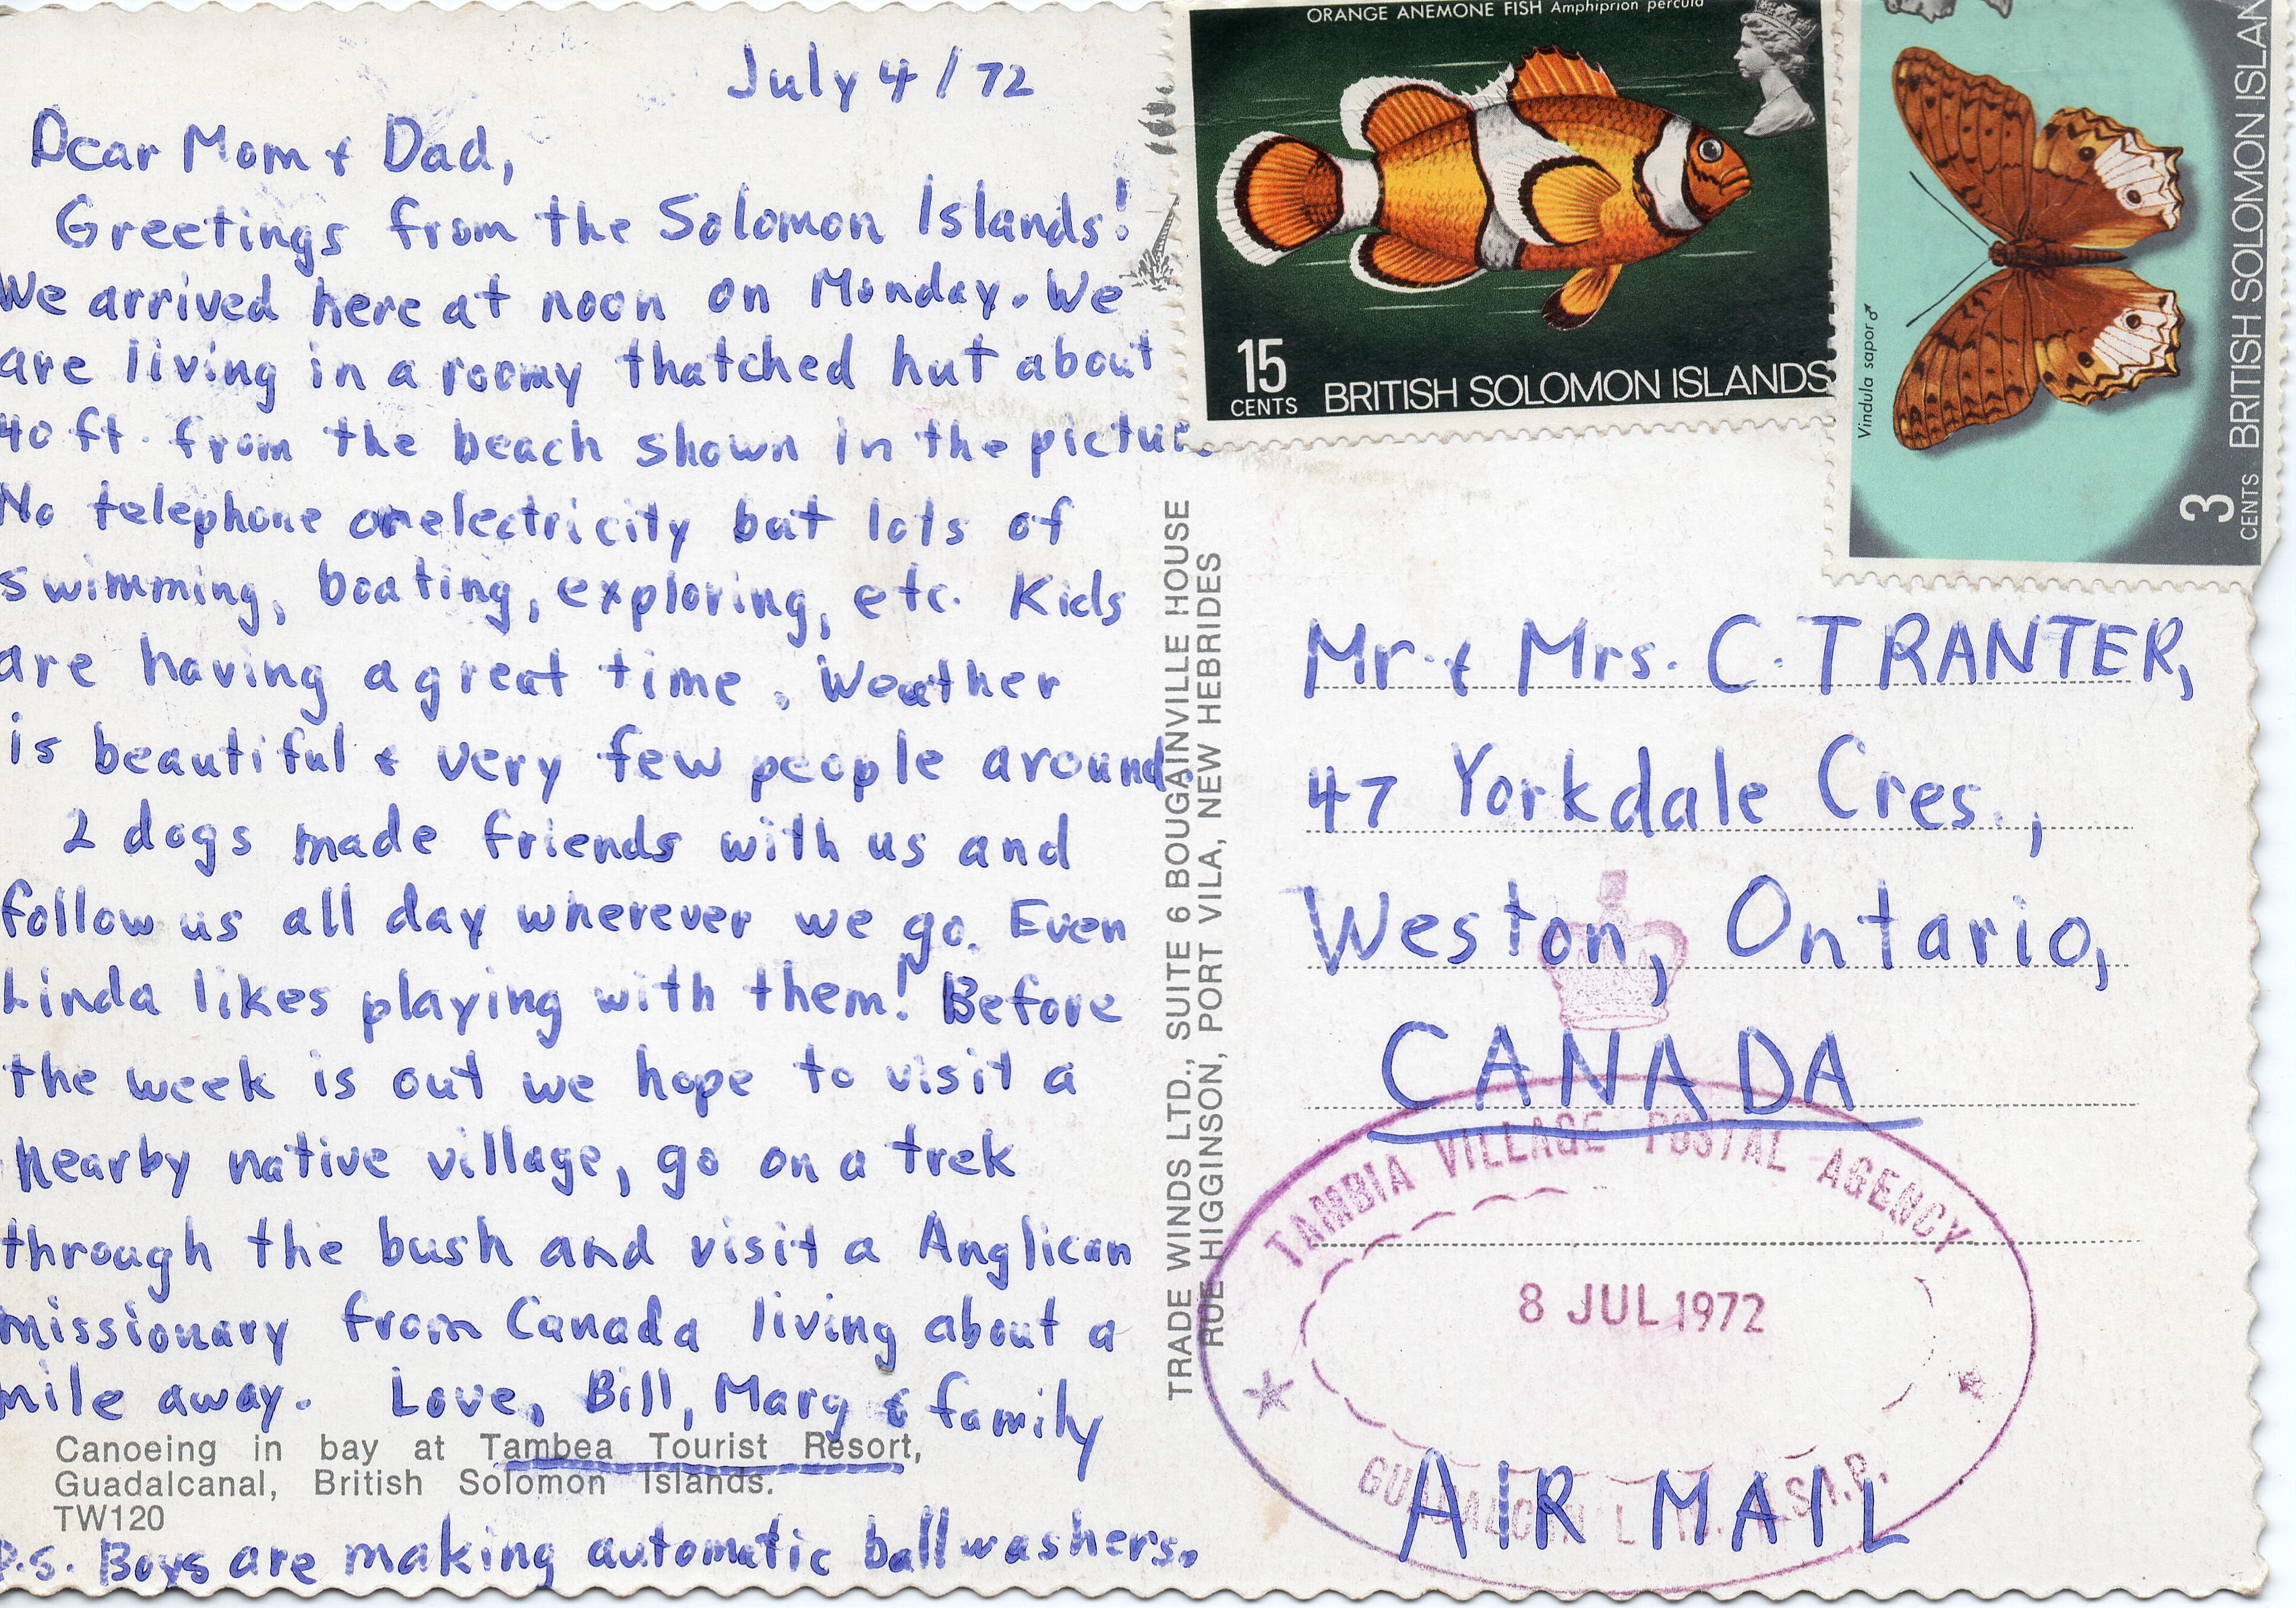 July 4/72
Dear Mom & Dad,
Greetings from the Solomon Islands!
We arrived here at noon on Monday. We
are living in a roomy thatched hut about
40 ft. from the beach shown in the picture.
No telephone or electricity but lots of
swimming, boating, exploring, etc. Kids
are having a great time. Weather
is beautiful & very few people around.
2 dogs made friends with us and
follow us all day wherever we go. Even
Linda likes playing with them! Before
the week is out we hope to visit a
nearby native village, go on a trek
through the bush and visit a Anglican
missionary from Canada living about a
mile away. Love, Bill, Marg & family
Canoeing in bay at Tambea Tourist Resort,
Guadalcanal, British Solomon Islands.
TW120
P.S. Boys are making automatic ball washers.
TRADE WINDS LTD., SUITE 6 BOUGAINVILLE HOUSE
RUE HIGGINSON, PORT VILA, NEW HEBRIDES
ORANGE ANEMONE FISH Amphiprion percula
15
CENTS BRITISH SOLOMON ISLANDS
Vindula sapor ♂
3
CENTS BRITISH SOLOMON ISLAN
Mr. & Mrs. C. TRANTER,
47 Yorkdale Cres.,
Weston, Ontario,
CANADA
TAMBIA VILLAGE POSTAL AGENCY
8 JUL 1972
AIR MAIL